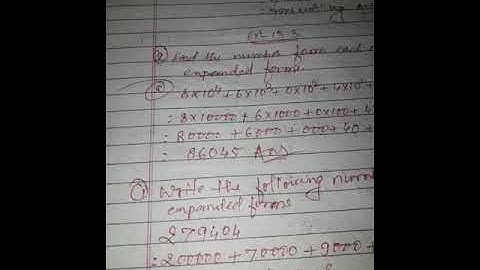 Ex 13.3
② Find the number from each
expanded forms.
ⓐ 8×10⁴ + 6×10³ + 0×10² + 4×10¹ +
= 8×10000 + 6×1000 + 0×100 + 4
= 80000 + 6000 + 000 + 40 +
= 86045 Ans
① Write the following
expanded forms
279404
= 200000 + 70000 + 9000 +